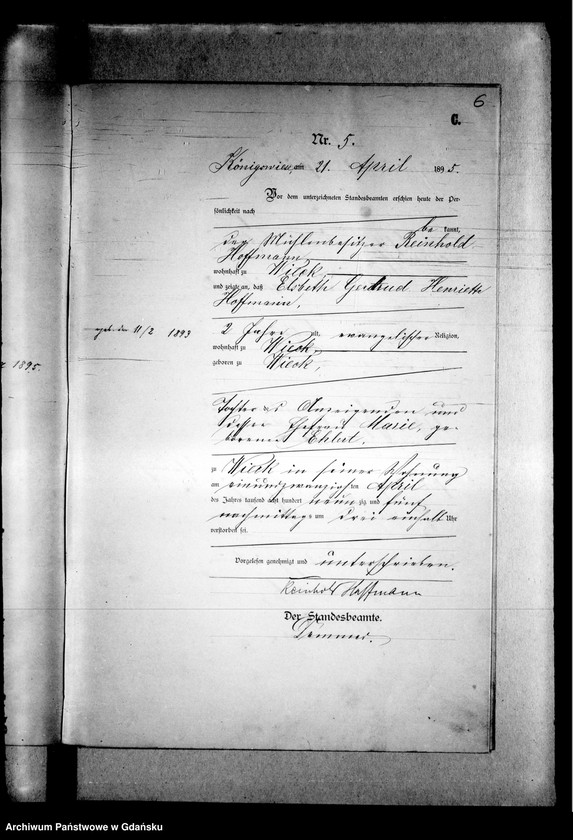 6
C.
Nr. 5.
Königswiese, am 21. April 1895.
Vor dem unterzeichneten Standesbeamten erschien heute der Per-
sönlichkeit nach
be kannt,
der Mühlenbesitzer Reinhold
Hoffmann
wohnhaft zu Wieck
und zeigte an, daß Elsbeth Gertrud Henrieth
Hoffmann,
geb. den 11/2 1893
2 Jahre alt, evangelischer Religion,
wohnhaft zu Wieck
1895.
geboren zu Wieck,
Tochter des Anzeigenden und
dessen Ehefrau Marie, ge-
borenen
zu Wieck in seiner Wohnung
am einundzwanzigsten April
des Jahres tausend acht hundert neunzig und fünf
nachmittags um drei einhalb Uhr
verstorben sei.
Vorgelesen genehmigt und unterschrieben.
Reinhold Hoffmann
Der Standesbeamte.
Archiwum Państwowe w Gdańsku